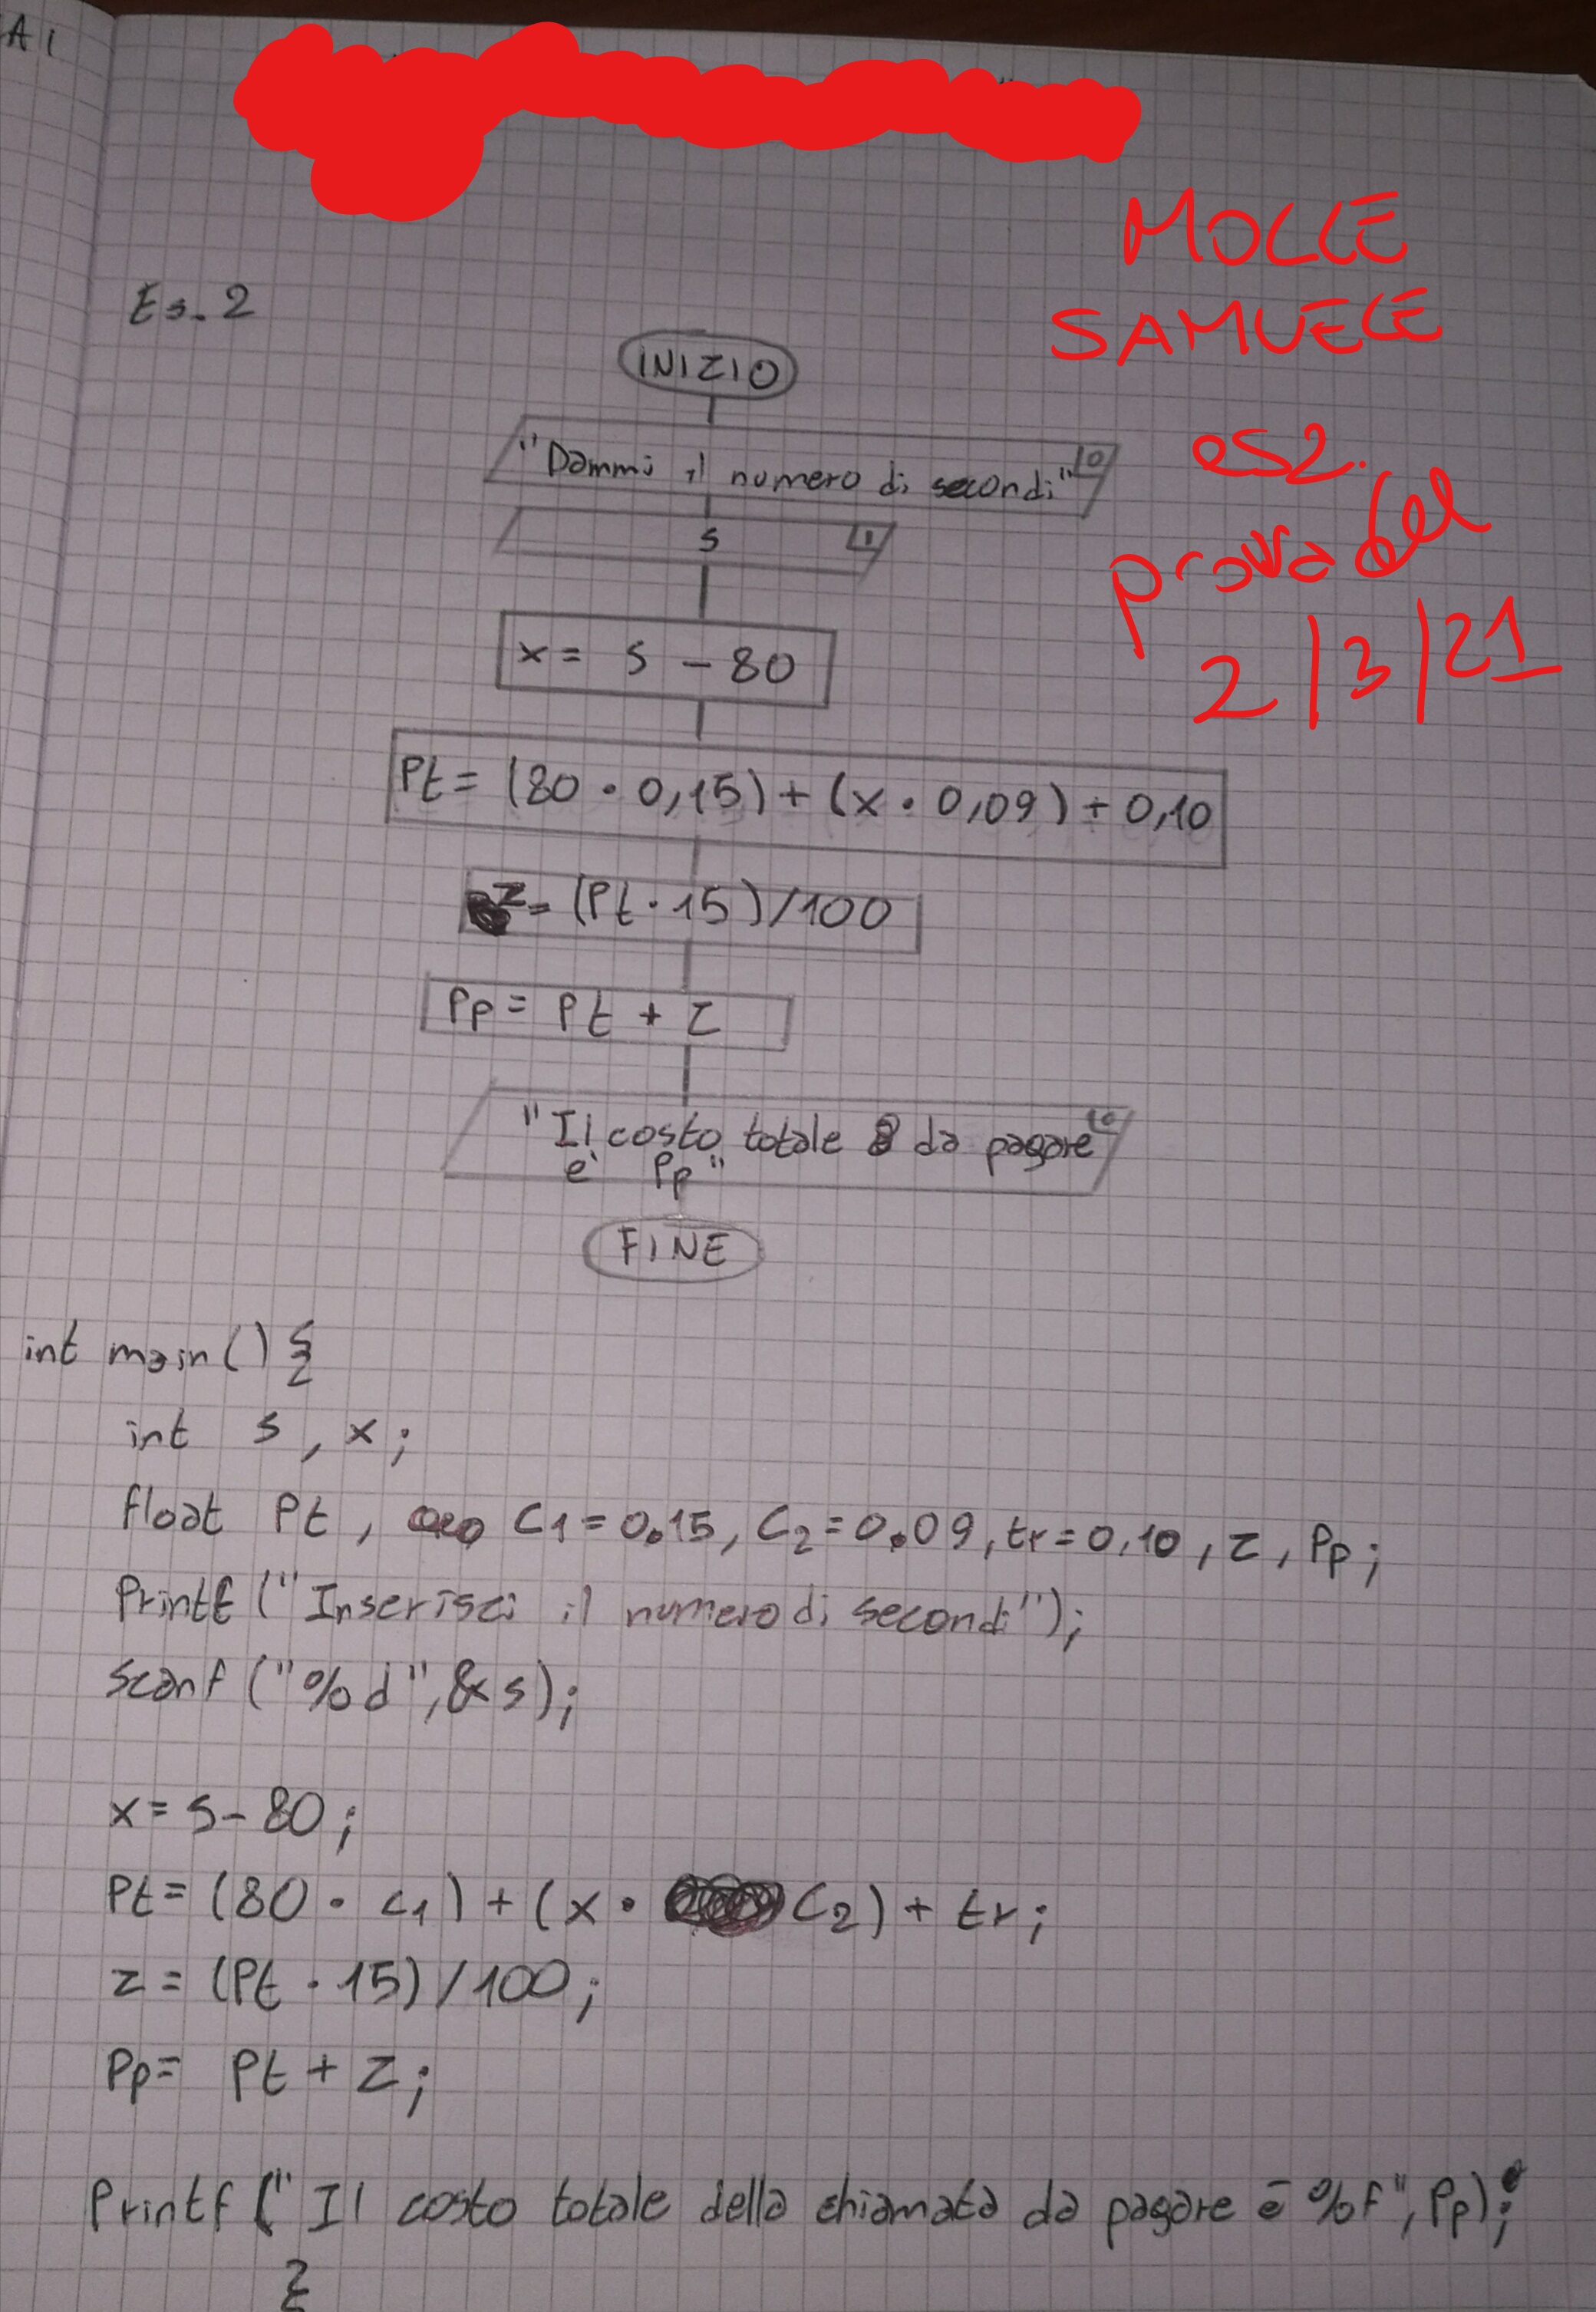 A1
MOLLE
SAMUELE
es2.
prova del
2/3/21
Es. 2
INIZIO
"Dammi il numero di secondi" O
s I
x = s - 80
Pt = (80 · 0,15) + (x · 0,09) + 0,10
z = (Pt · 15)/100
Pp = Pt + z
"Il costo totale da pagare O
è Pp"
FINE
int main() {
int s, x;
float Pt, C1 = 0.15, C2 = 0.09, tr = 0.10, z, Pp;
Printf ("Inserisci il numero di secondi");
Scanf ("%d", &s);
x = s - 80;
Pt = (80 · C1) + (x · C2) + tr;
z = (Pt · 15) / 100;
Pp = Pt + z;
Printf ("Il costo totale della chiamata da pagare è %f", Pp);
}